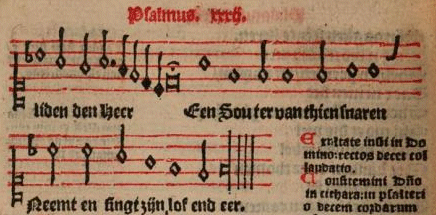 Psalmus. xxxij.
liden den Heer Een Souter van thien snaren
Neemt en singt zijn lof end eer.
Exultate iusti in Do
mino: rectos decet col
laudatio.
Confitemini Dño
in cithara: in psalteri
o decem cordarum